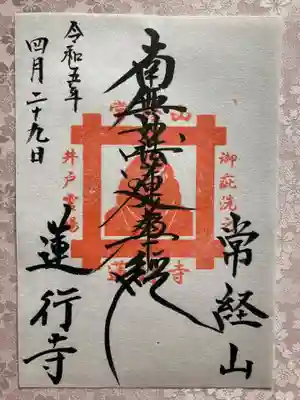 常経山
御疵洗
南無妙法蓮華経
井戸霊場
令和五年
四月二十九日
蓮行寺